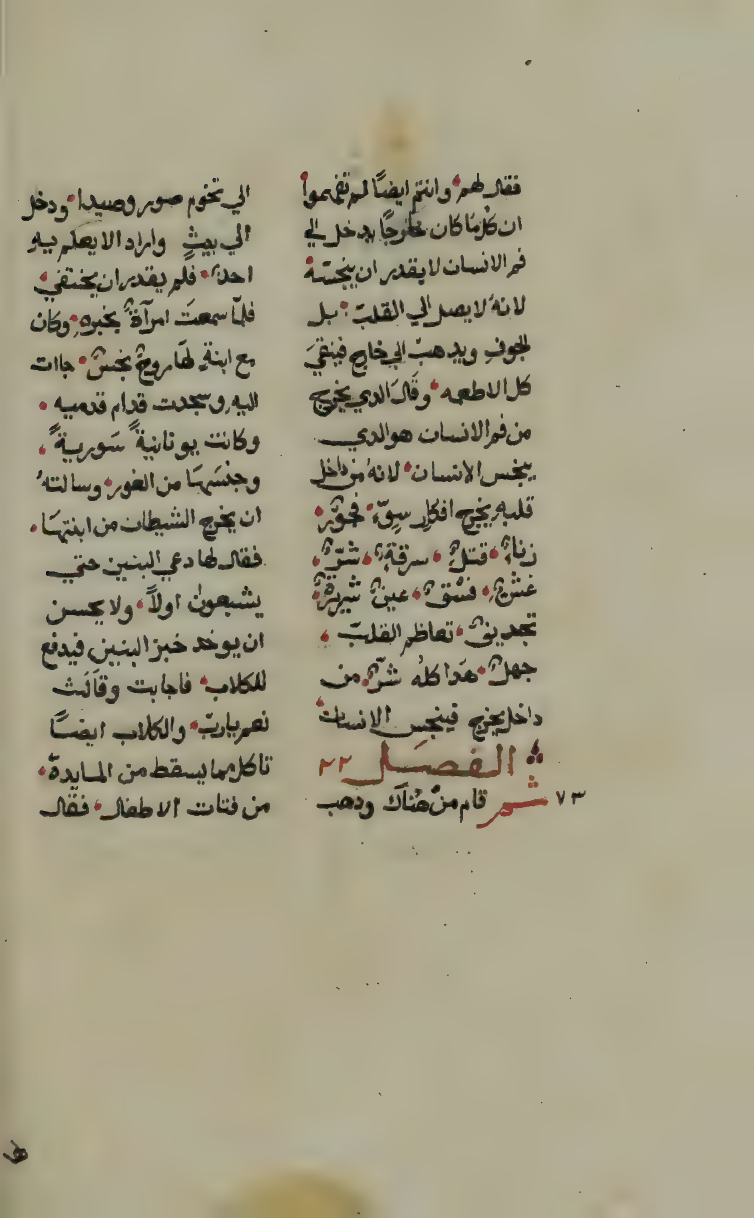 فقال لهم وانتم ايضًا لم تفهموا
ان كلما كان خارجًا يدخل الي
فم الانسان لا يقدر ان ينجسه
لانهُ لا يصل الي القلب بل
للجوف ويدهب الي خارج فينقي
كل الاطعمه وقال الدي يخرج
من فم الانسان هو الدي
ينجس الانسان لانهُ من داخل
قلبه يخرج افكار سوّ فجور
زناء قتل سرقة شرّ
غش فسق عين شريرة
تجديف تعاظم القلب
جهل هدا كله شرّ من
داخل يخرج فينجس الانسان
الفصل ٢٢
٧٣ ثم قام من هناك ودهب
الي تخوم صور وصيدا ودخل
الي بيتٍ واراد الا يعلم به
احد فلم يقدر ان يختفي
فلمّا سمعت امرآة بخبره وكان
مع ابنة لها روح نجس جاات
اليه وسجدت قدام قدميه
وكانت يونانية سورية
وجنسها من الغور وسالته
ان يخرج الشيطان من ابنتها
فقال لها دعي البنين حتي
يشبعون اولاً ولا يحسن
ان يوخد خبز البنين فيدفع
للكلاب فاجابت وقالت
نعم يارب والكلاب ايضًا
تاكل مما يسقط من المايدة
من فتات الاطفال فقال